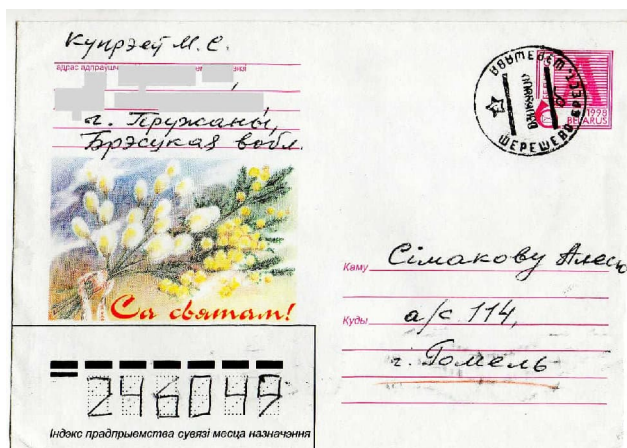 Купрэеў М. С.
адрас адпраўшч
г. Пружаны,
Брэсцкая вобл.
Са святам!
1998
BELARUS
ШЕРЕШЕВО
Каму Сімакову Алесю
Куды а/с 114,
г. Гомель
246049
Індэкс прадпрыемства сувязі месца назначэння